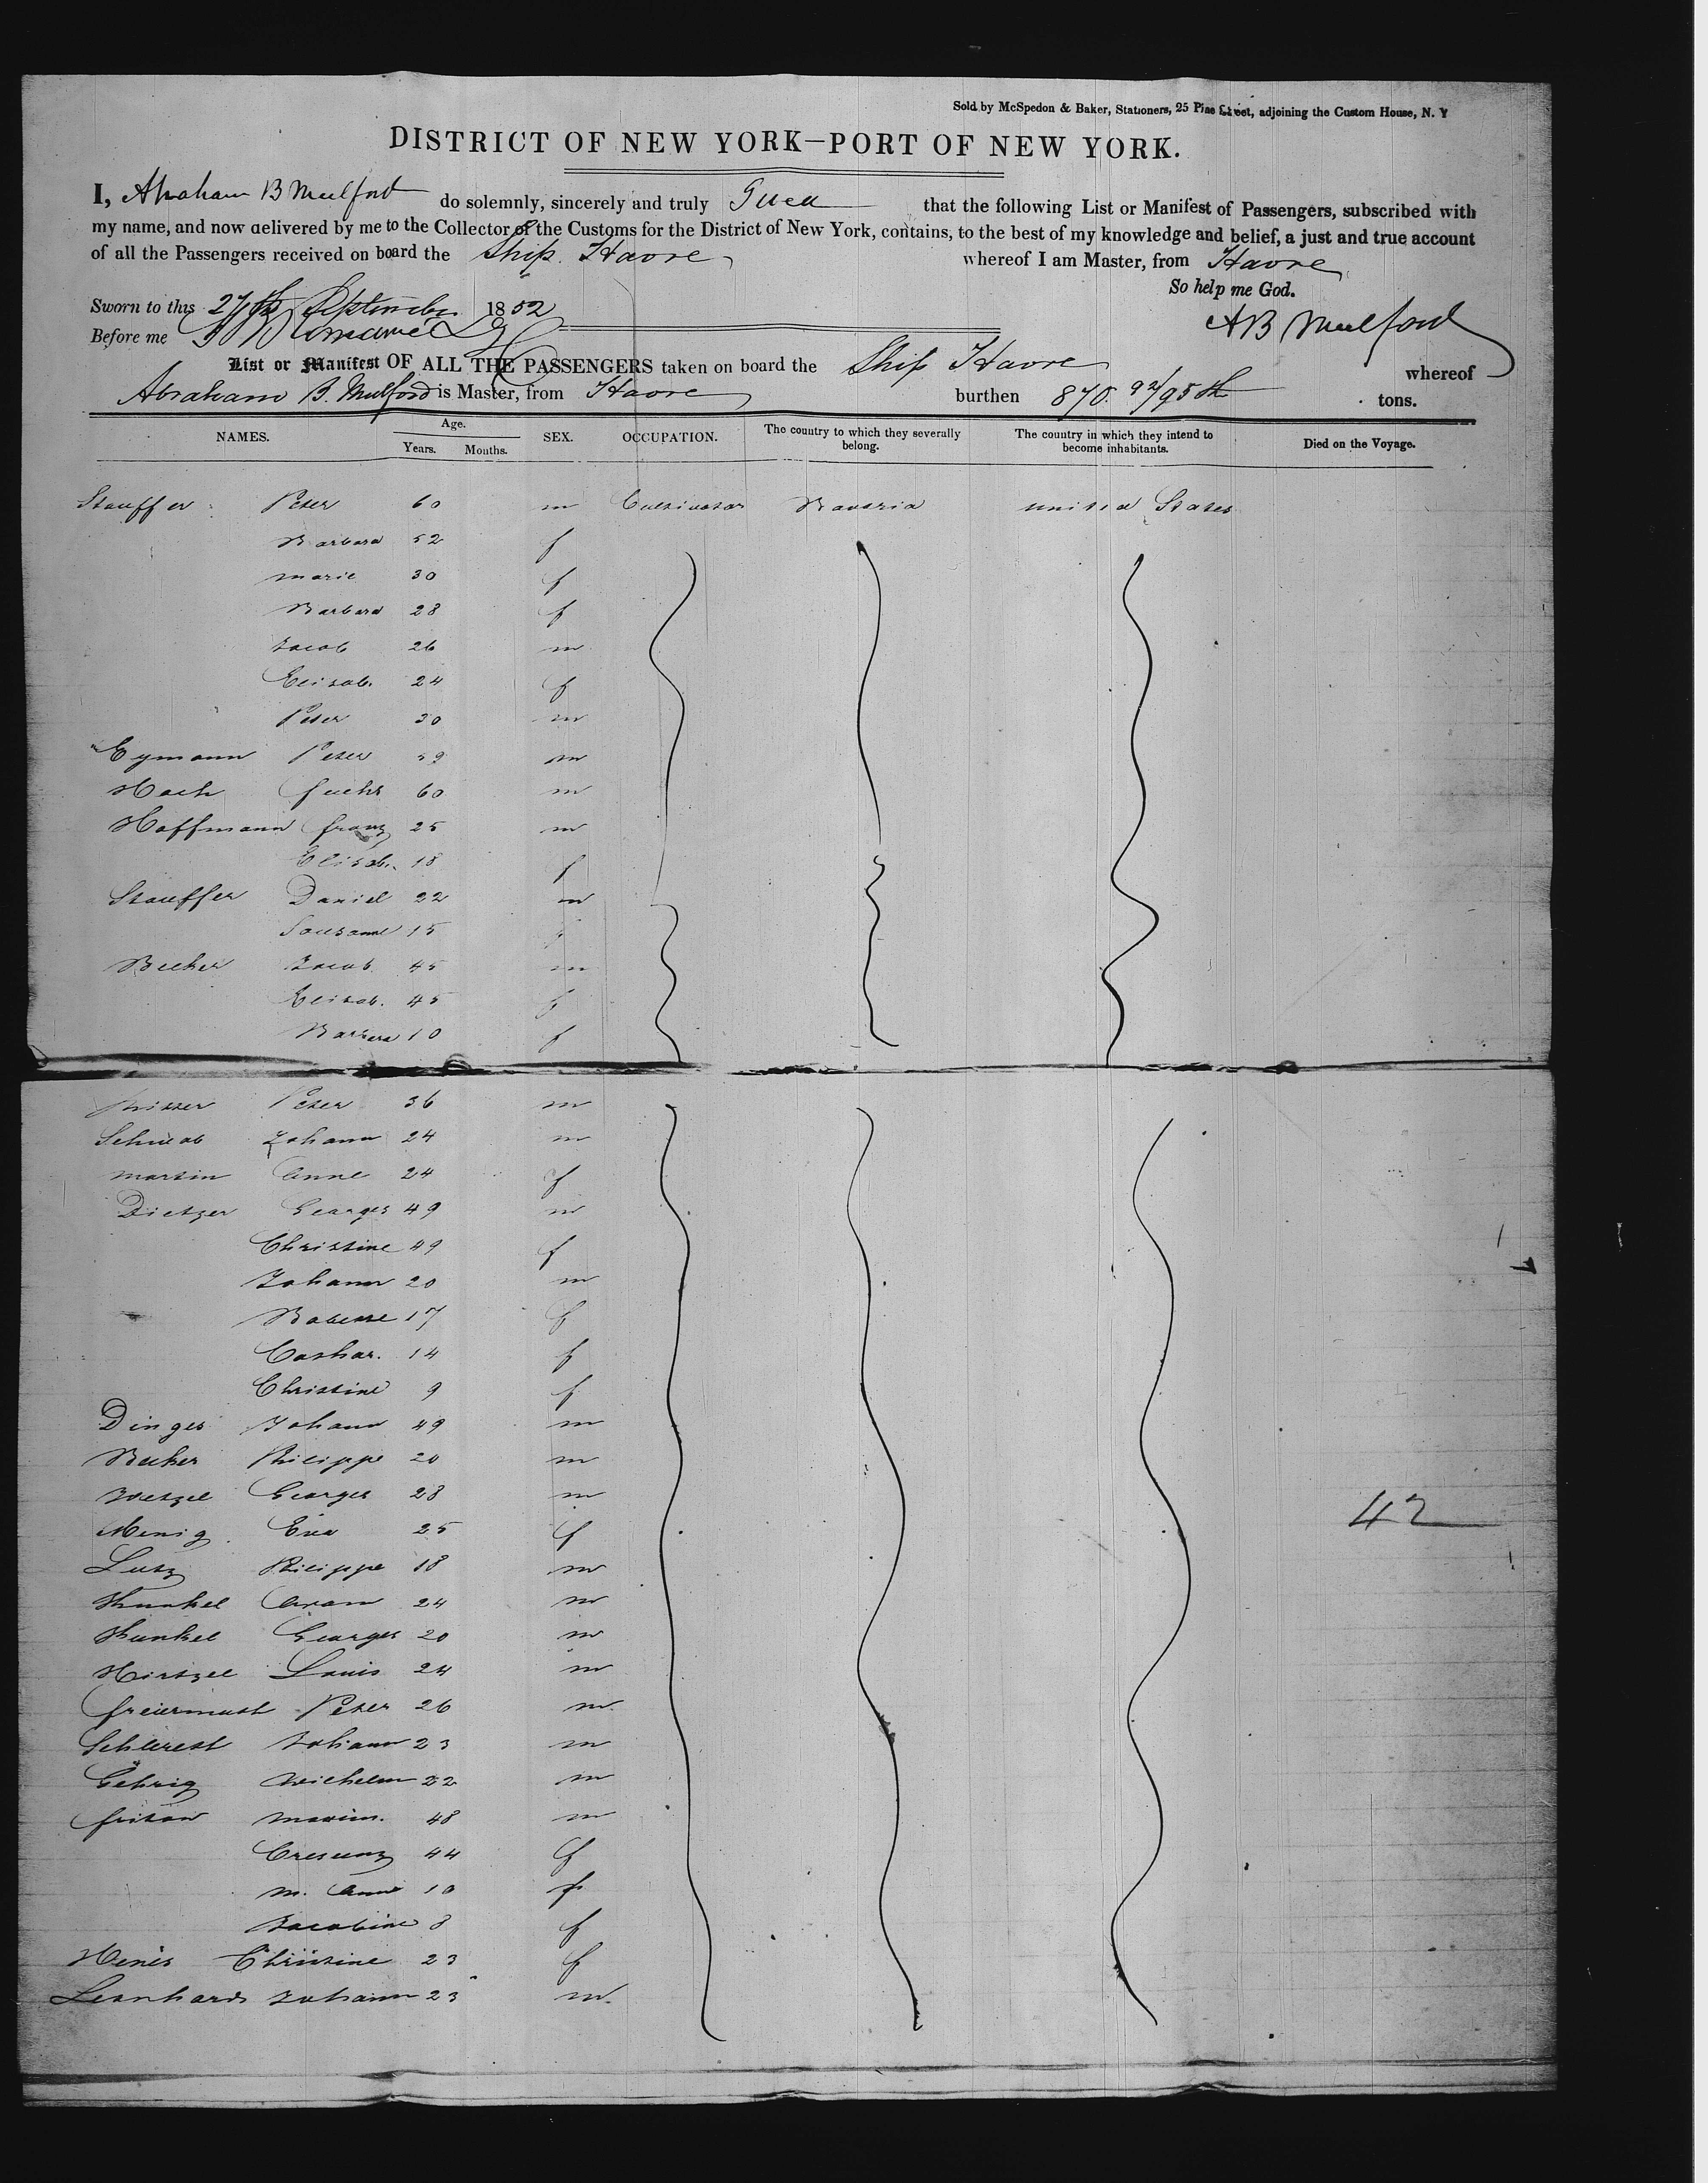 Sold by McSpedon & Baker, Stationers, 25 Pine Street, adjoining the Custom House, N. Y
DISTRICT OF NEW YORK—PORT OF NEW YORK.
I, Abraham B Mulford do solemnly, sincerely and truly that the following List or Manifest of Passengers, subscribed with
my name, and now delivered by me to the Collector of the Customs for the District of New York, contains, to the best of my knowledge and belief, a just and true account
of all the Passengers received on board the Ship Havre whereof I am Master, from Havre
So help me God.
Sworn to this 27th September 1852
A B Mulford
Before me
List or Manifest OF ALL THE PASSENGERS taken on board the Ship Havre whereof
Abraham B. Mulford is Master, from Havre burthen 870. 92/95th tons.
NAMES. Age. Years. Months. SEX. OCCUPATION. The country to which they severally belong. The country in which they intend to become inhabitants. Died on the Voyage.
Stauffer Peter 60 m Cultivator Bavaria united States
Barbara 52 f
marie 30 f
Barbara 28 f
Jacob 26 m
Elisab. 24 f
Peter 30 m
Eymann Peter m
Hach fuchs 60 m
Hoffmann franz 25 m
Elisab. 18 f
Stauffer Daniel 22 m
Sousanne 15 f
Becker Jacob 45 m
Elisab. 45 f
Barbara 10 f
Peter 36 m
Schwab Johann 24 m
martin Anne 24 f
Dietzer Georges 49 m
Christine 49 f
Johann 20 m
Babette 17 f
Cathar. 14 f
Christine 9 f
Dinges Johann 49 m
Becker Philippe 20 m
Wetzel Georges 28 m
Menig Eva 25 f
Lutz Philippe 18 m
Kunkel 24 m
Kunkel Georges 20 m
Hirtzel Louis 24 m
freiermuth Peter 26 m
Johann 23 m
Gehrig Wilhelm 22 m
maxim. 48 m
Crescenz 44 f
m. Anne 10 f
Jacobine 8 f
Christine 23 f
Leonhard Johann 23 m.
42